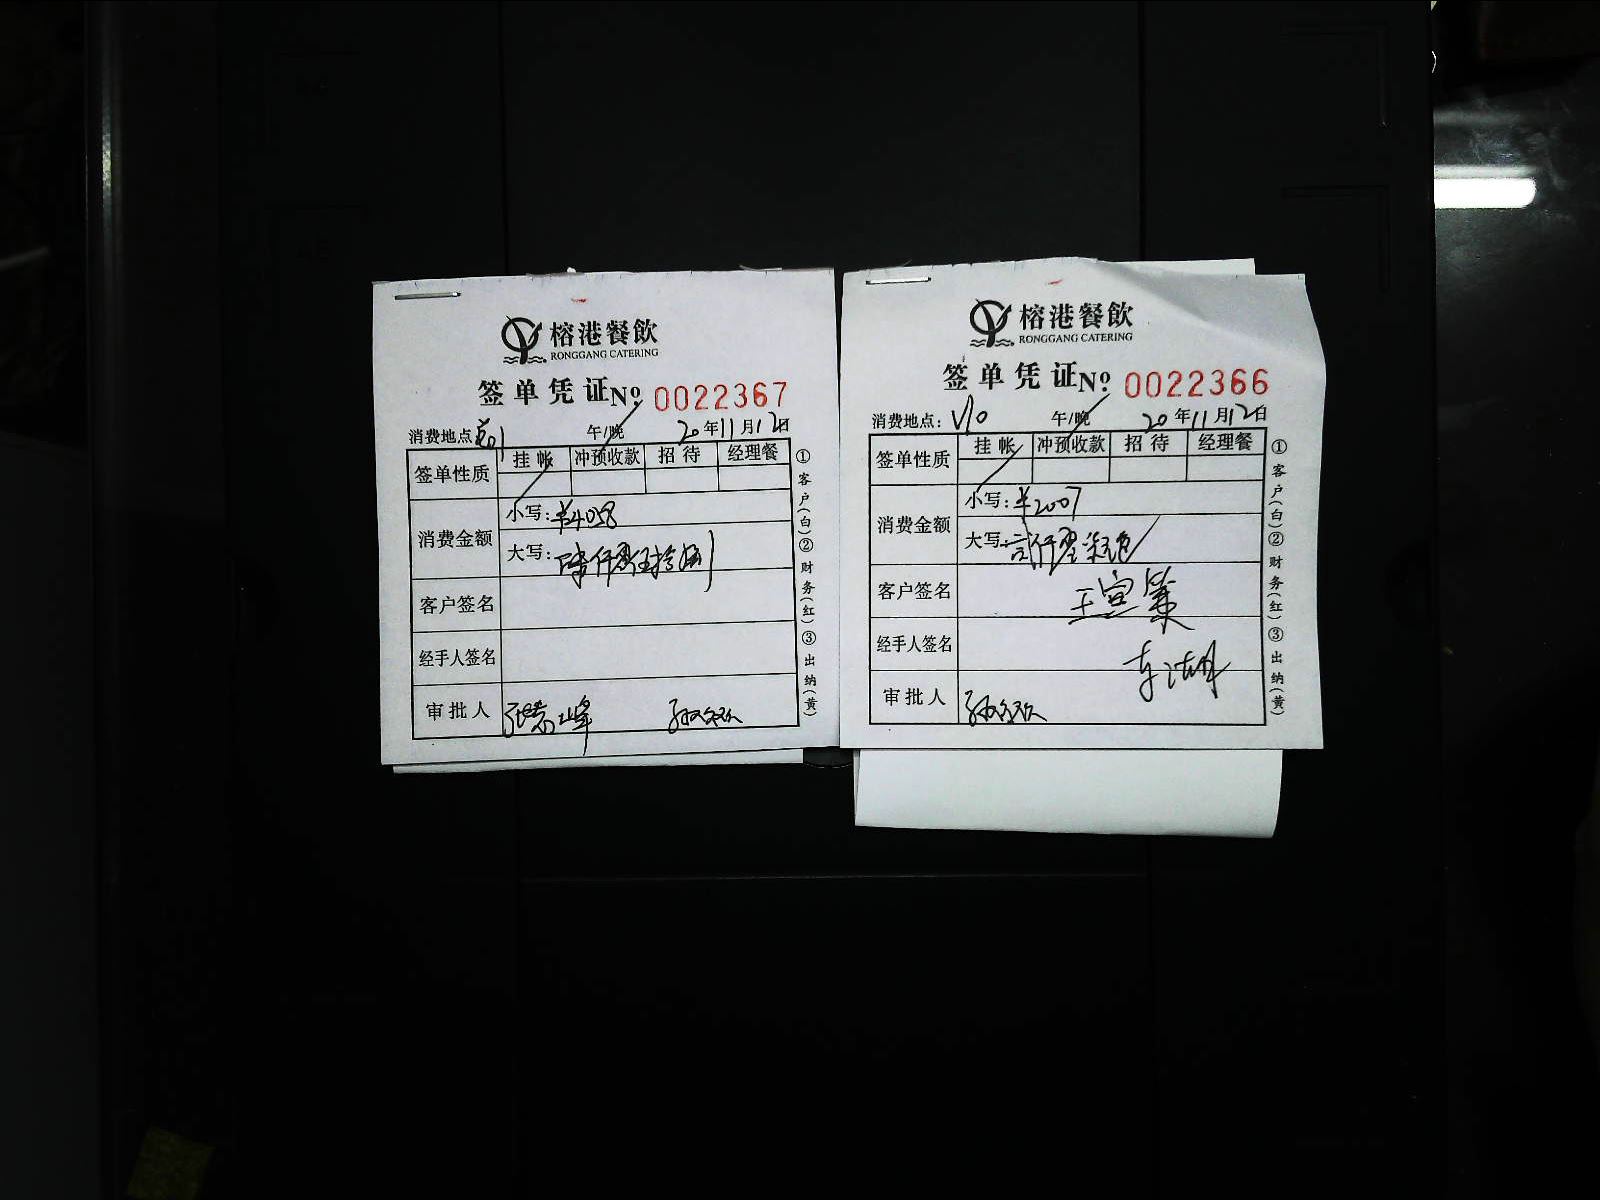 榕港餐飲
RONGGANG CATERING
签单凭证 № 0022367
消费地点: 午/晚 20年11月12日
签单性质 挂帐 冲预收款 招待 经理餐
消费金额 小写: ¥4058
大写:
客户签名
经手人签名
审批人
①客户(白)②财务(红)③出纳(黄)
榕港餐飲
RONGGANG CATERING
签单凭证 № 0022366
消费地点: V10 午/晚 20年11月12日
签单性质 挂帐 冲预收款 招待 经理餐
消费金额 小写: ¥2007
大写:
客户签名 王宣策
经手人签名
审批人
①客户(白)②财务(红)③出纳(黄)